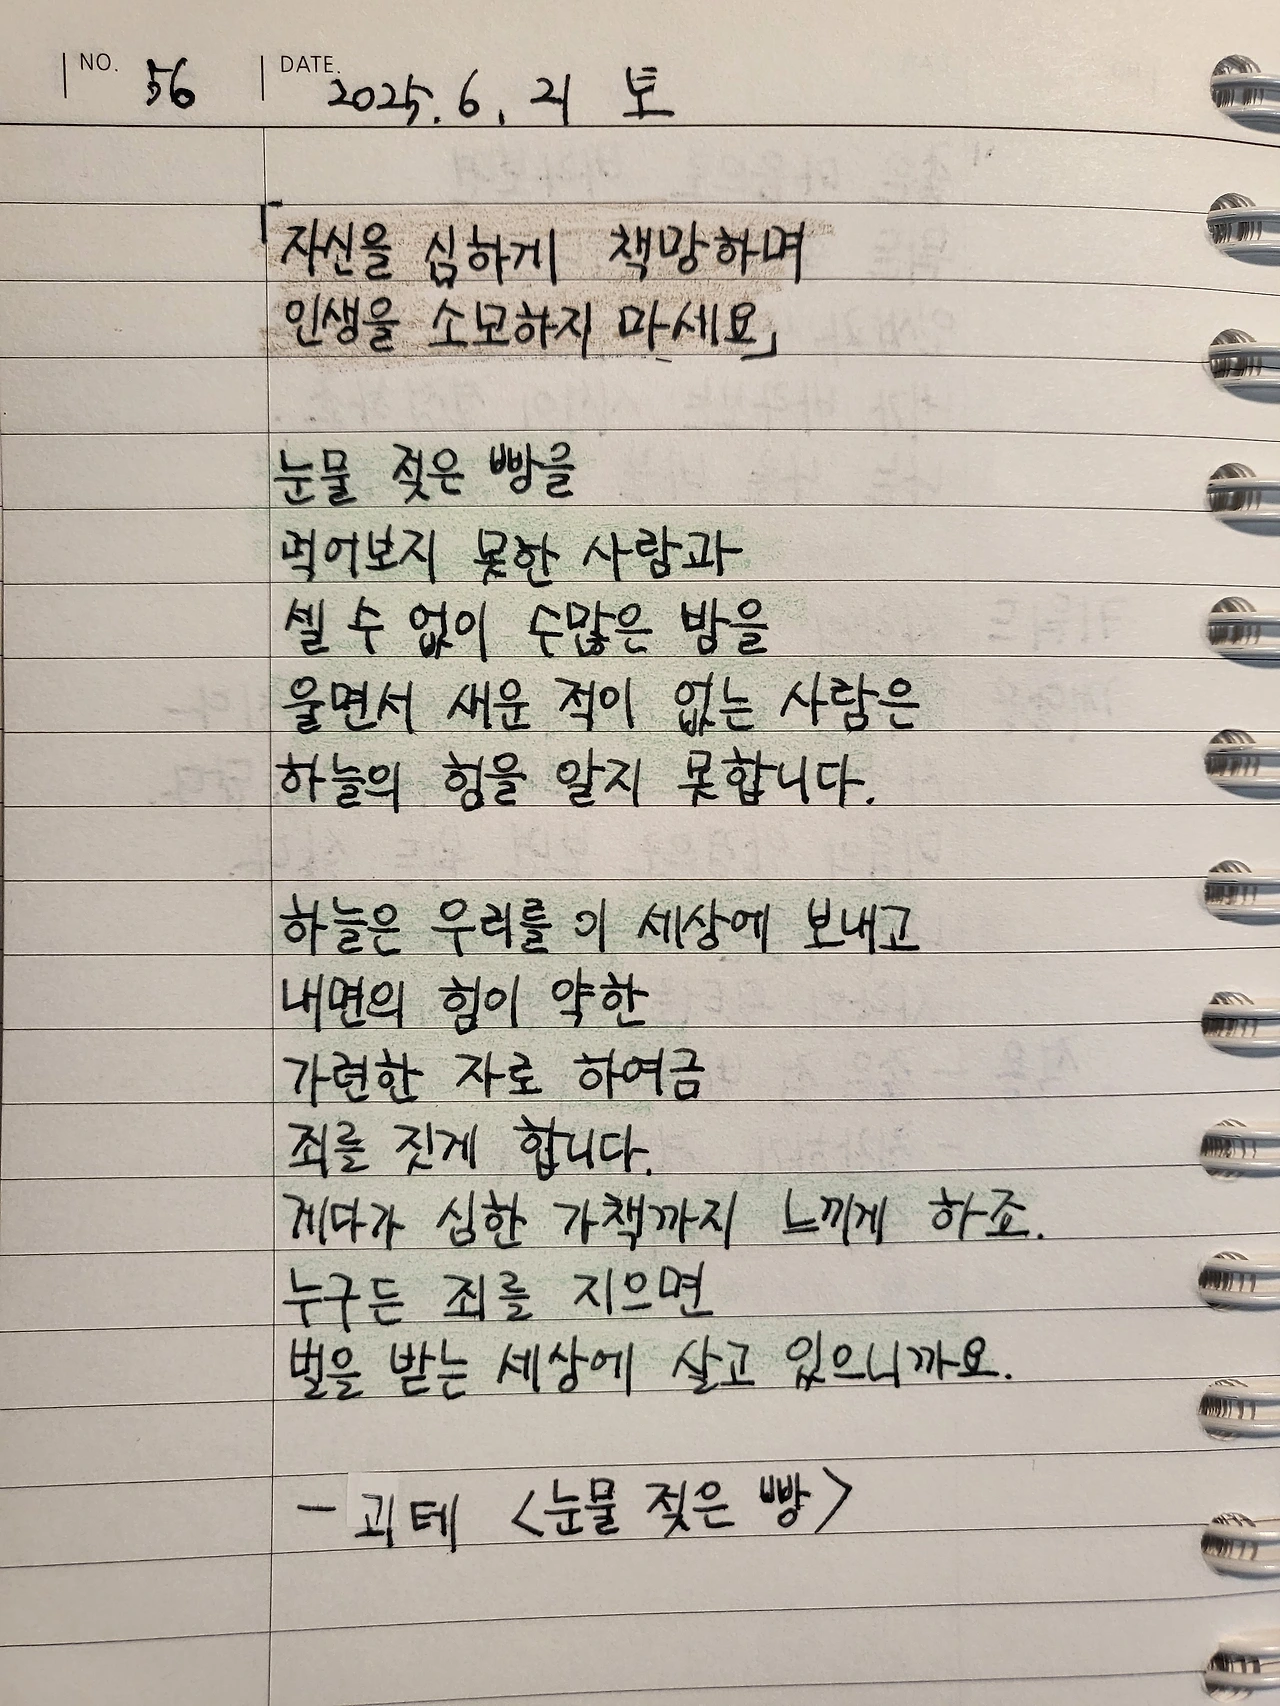 NO. 56 DATE. 2025. 6. 21 토
「자신을 심하게 책망하며
인생을 소모하지 마세요」
눈물 젖은 빵을
먹어보지 못한 사람과
셀 수 없이 수많은 밤을
울면서 새운 적이 없는 사람은
하늘의 힘을 알지 못합니다.
하늘은 우리를 이 세상에 보내고
내면의 힘이 약한
가련한 자로 하여금
죄를 짓게 합니다.
게다가 심한 가책까지 느끼게 하죠.
누구든 죄를 지으면
벌을 받는 세상에 살고 있으니까요.
— 괴테 <눈물 젖은 빵>